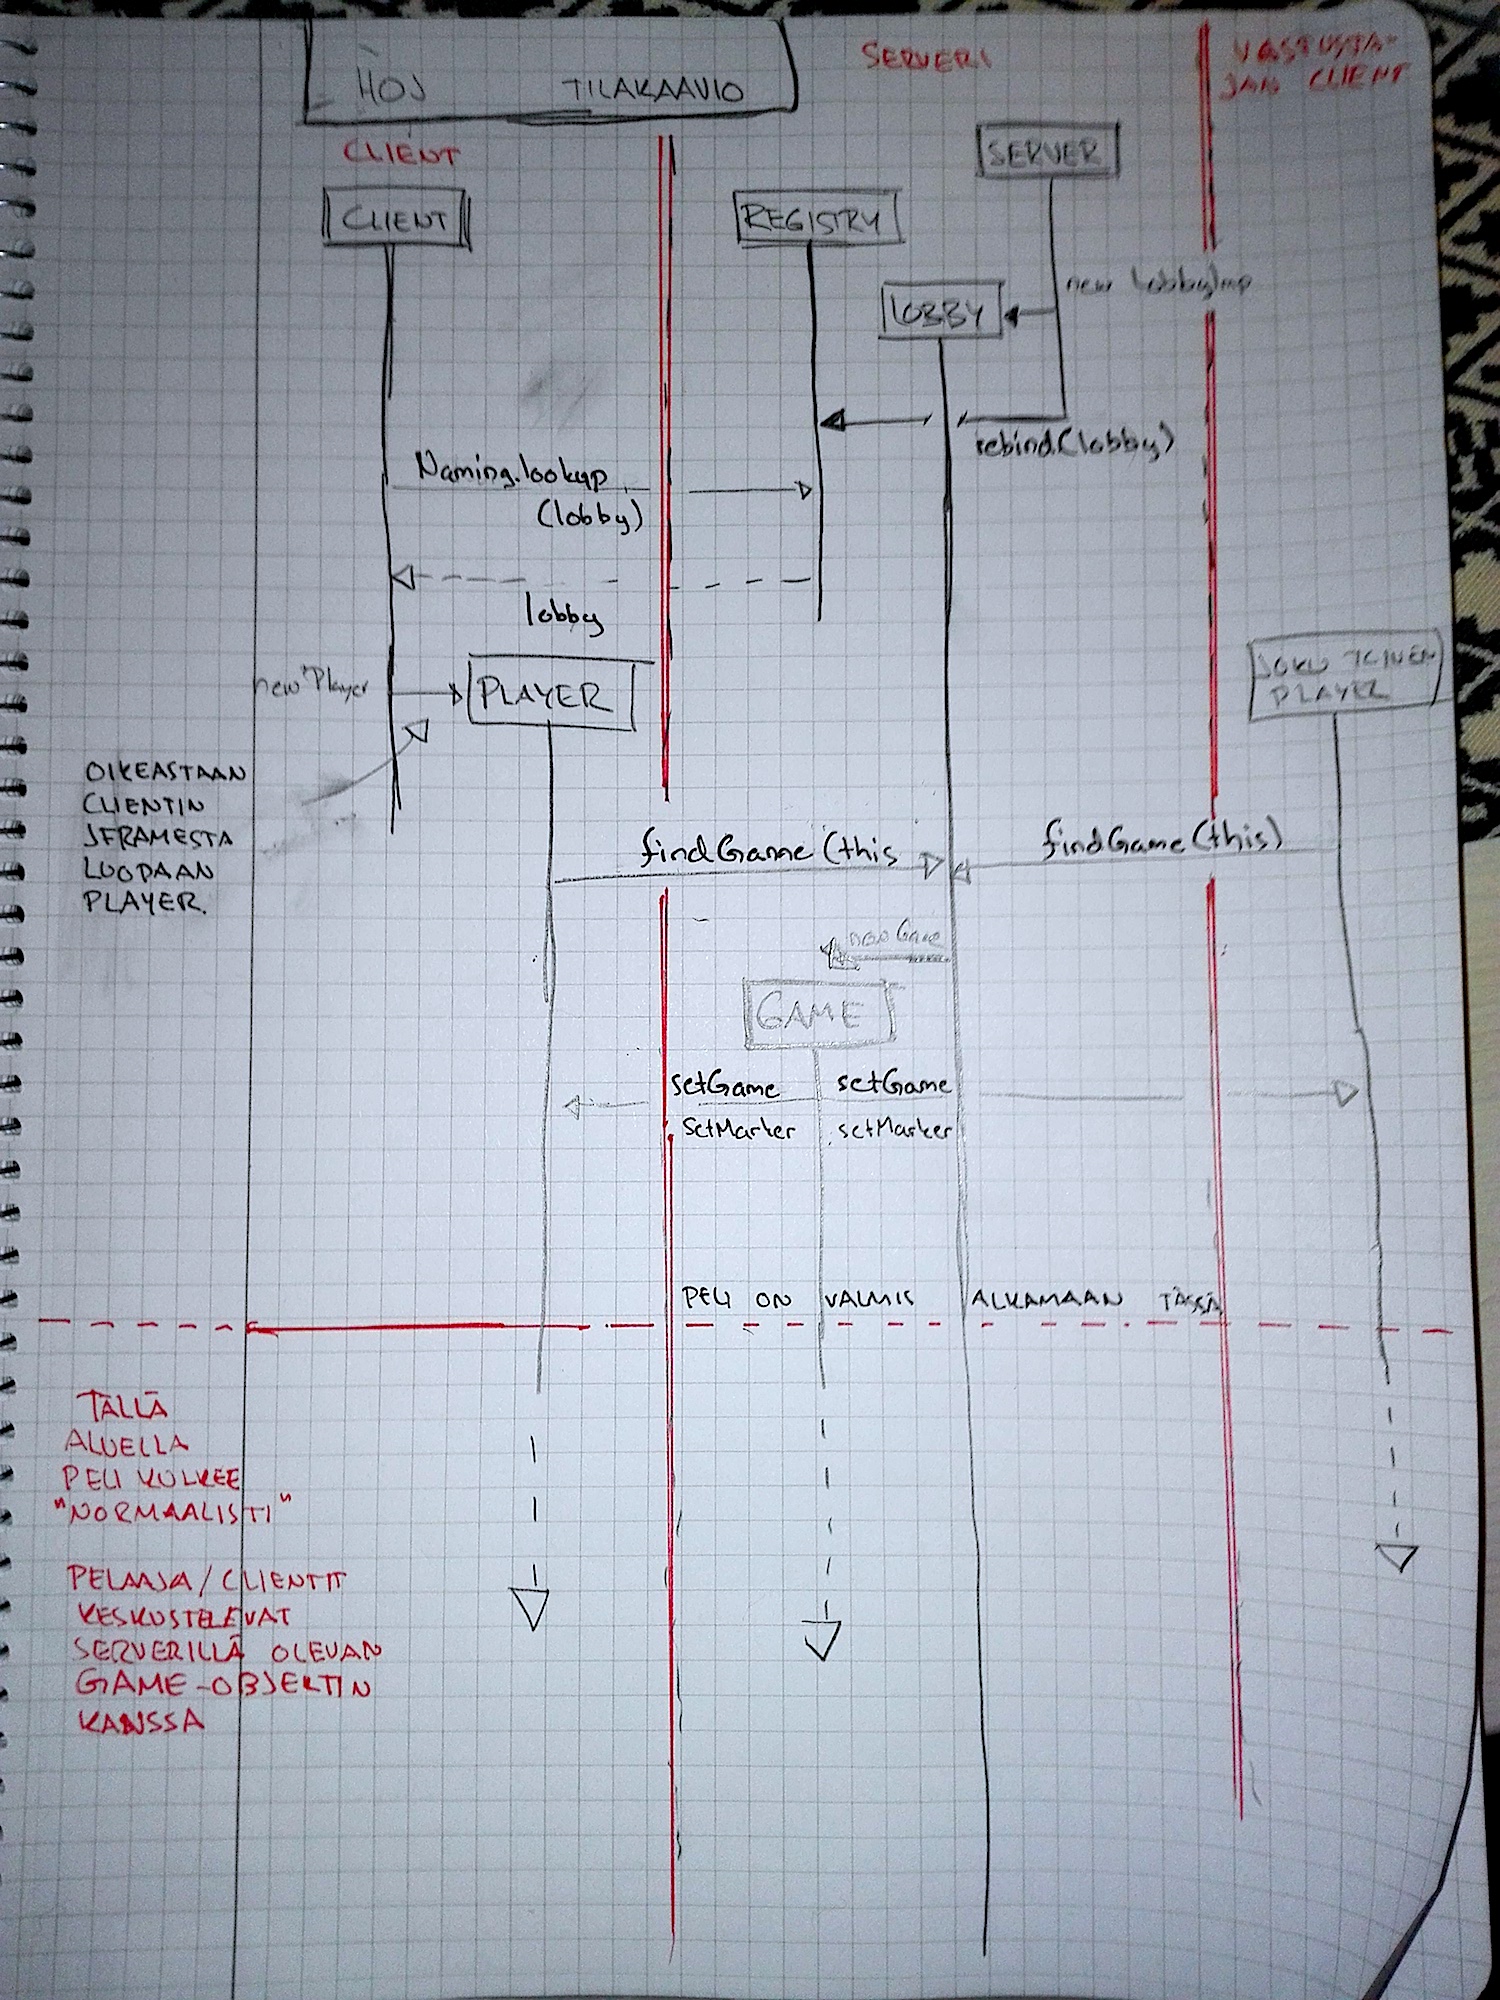 HOJ TILAKAAVIO
SERVERI
VASTUSTA-
JAN CLIENT
CLIENT
SERVER
CLIENT
REGISTRY
new LobbyImp
LOBBY
rebind(lobby)
Naming.lookup
(lobby)
lobby
new Player
PLAYER
JOKU TOINEN
PLAYER
OIKEASTAAN
CLIENTIN
JFRAMESTA
LUODAAN
PLAYER.
findGame(this
findGame(this)
new Game
GAME
setGame setGame
SetMarker setMarker
PELI ON VALMIS ALKAMAAN TÄSSÄ
TÄLLÄ
ALUELLA
PELI KULKEE
"NORMAALISTI"
PELAAJA/CLIENTIT
KESKUSTELEVAT
SERVERILLÄ OLEVAN
GAME-OBJEKTIN
KANSSA